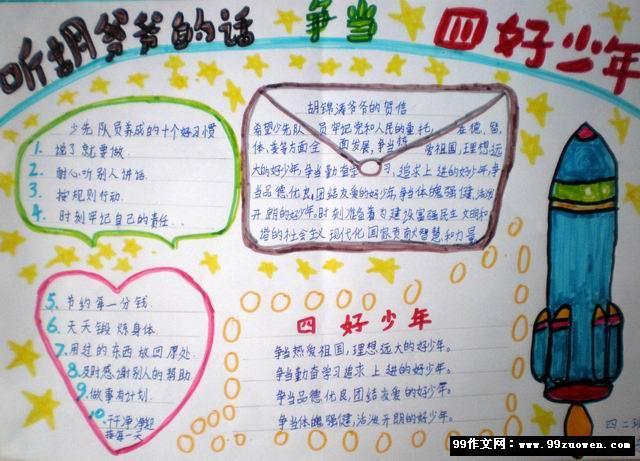 听胡爷爷的话 争当 四好少年
少先队员养成的十个好习惯
1. 说了就要做.
2. 耐心听别人讲话.
3. 按规则行动.
4. 时刻牢记自己的责任.
胡锦涛爷爷的贺信
希望少先队 员牢记党和人民的重托, 在德、智、
体、美等方面全 面发展,争当热 爱祖国,理想远
大的好少年,争当勤奋学 习,追求上进的好少年,争
当品德优良,团结友爱的好少年,争当体魄强健,活泼
开朗的好少年,时刻准备着为建设富强民主文明和
谐的社会主义现代化国家贡献智慧和力量
5. 节约每一分钱.
6. 天天锻炼身体.
7. 用过的东西放回原处.
8. 及时感谢别人的帮助.
9. 做事有计划.
10. 干干净净迎
接每一天
四好少年
争当热爱祖国,理想远大的好少年。
争当勤奋学习追求上进的好少年。
争当品德优良,团结友爱的好少年。
争当体魄强健,活泼开朗的好少年。
四 二班
99作文网:www.99zuowen.com